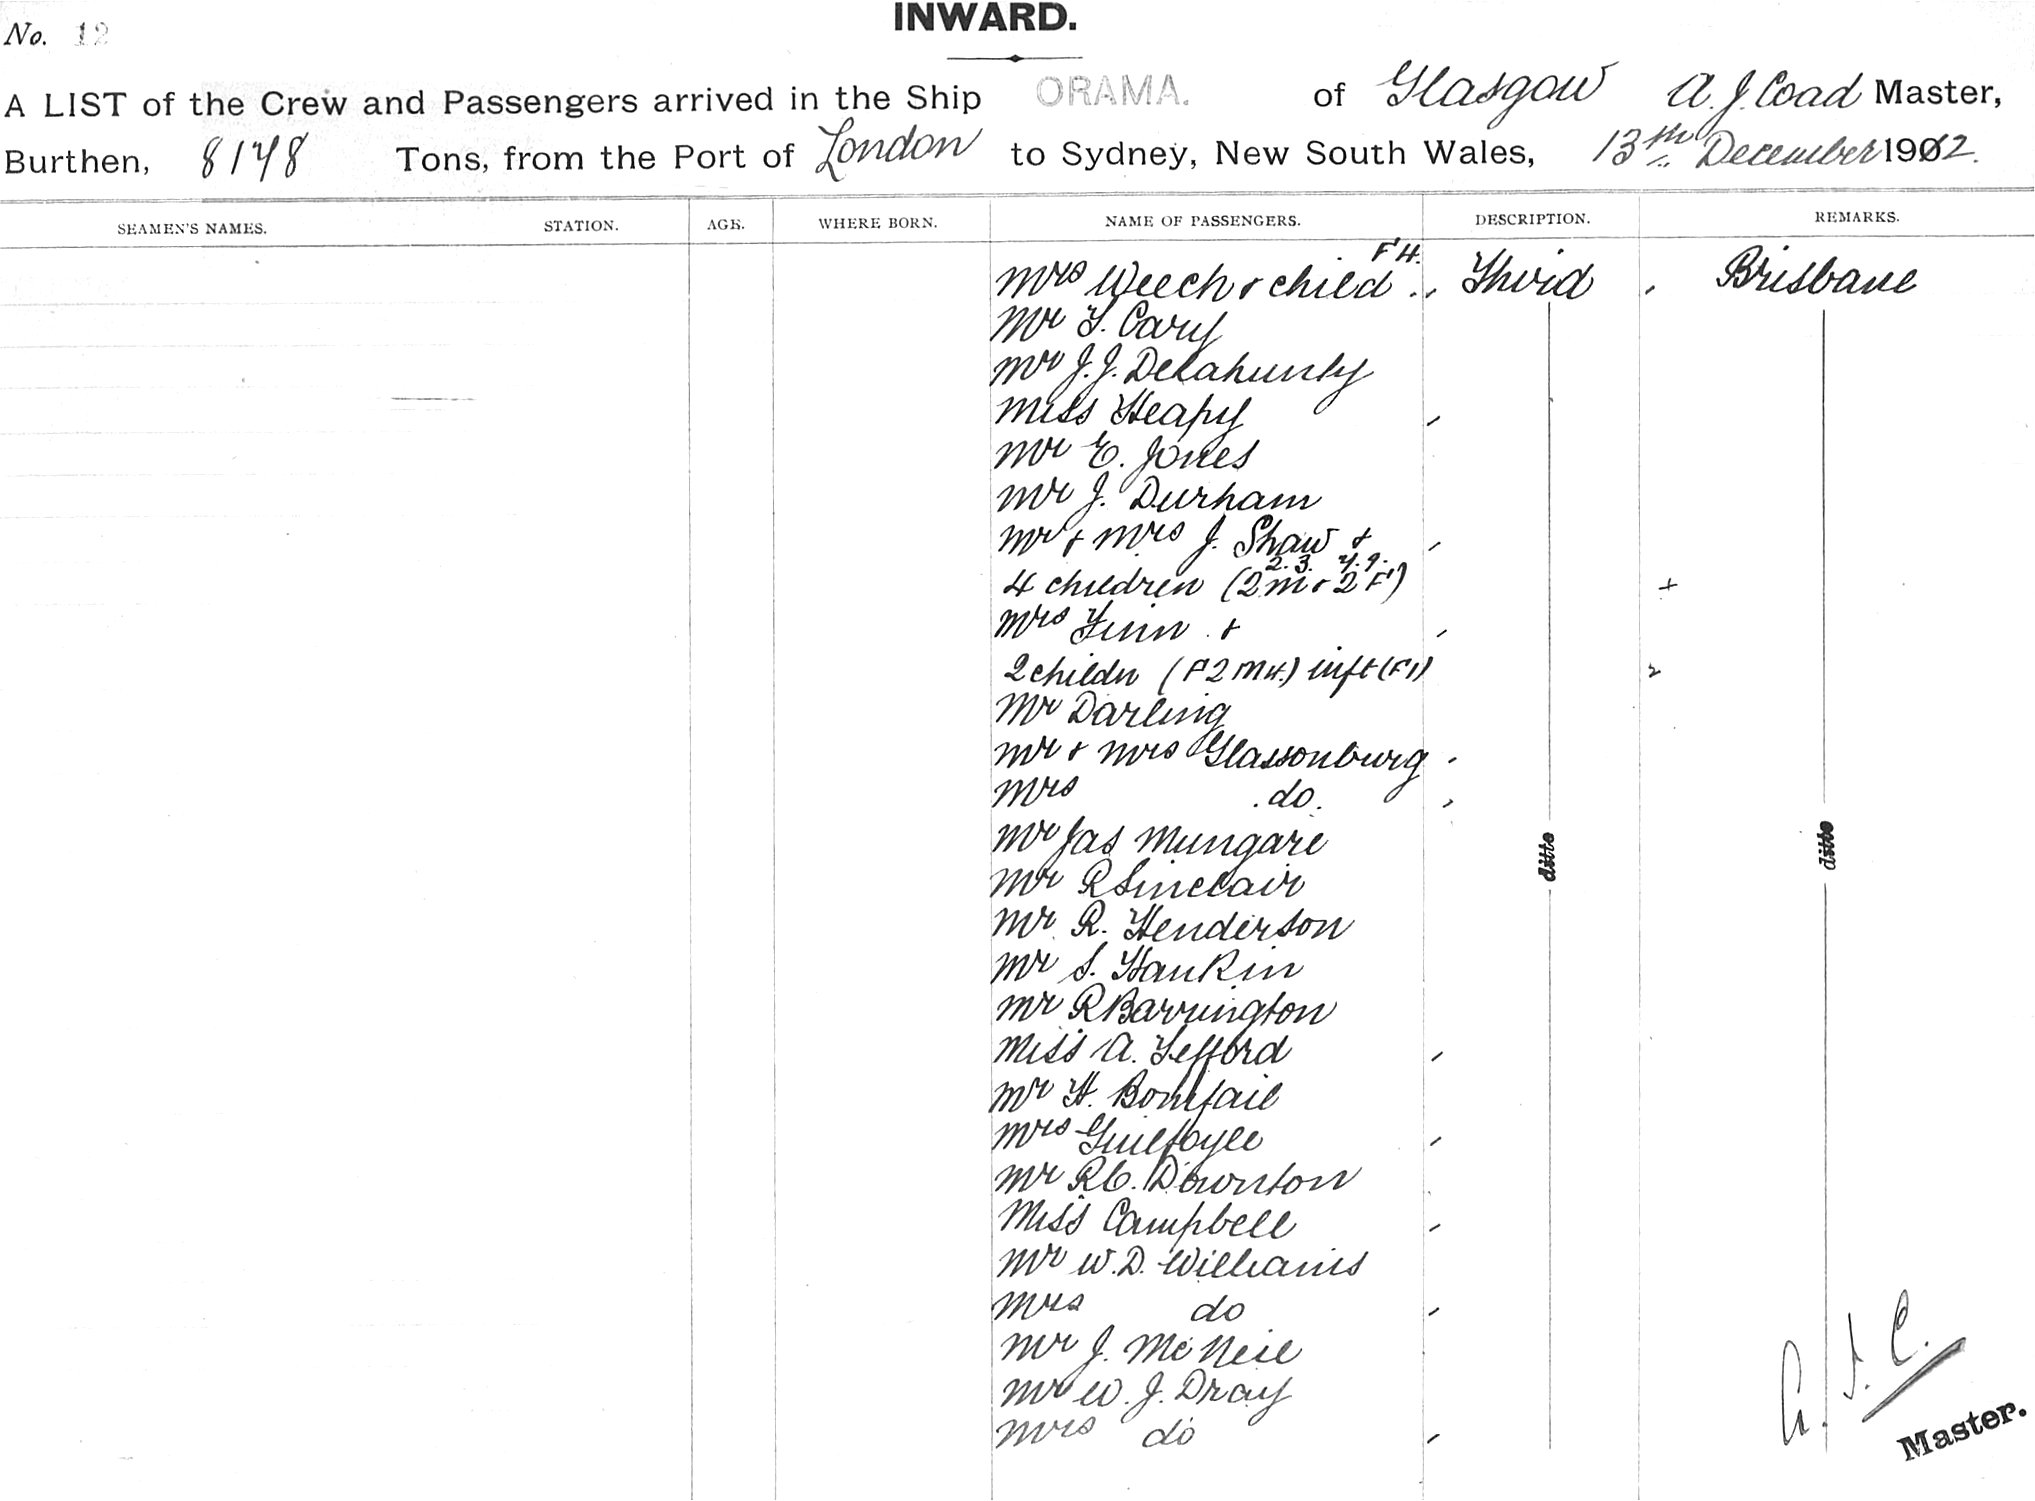 INWARD.
No. 12
A LIST of the Crew and Passengers arrived in the Ship ORAMA. of Glasgow A. J. Coad Master,
Burthen, 8178 Tons, from the Port of London to Sydney, New South Wales, 13th December 1912.
SEAMEN'S NAMES. STATION. AGE. WHERE BORN. NAME OF PASSENGERS. DESCRIPTION. REMARKS.
F 4.
Mrs Weech & child Third Brisbane
Mr T. Cary
Mr J. J. Delahunty
Miss Heapy
Mr E. Jones
Mr J. Durham
Mr & Mrs J. Shaw &
2. 3. 7. 9.
4 children (2 M & 2 F)
Mrs Finn &
2 childn (F 2 M 4.) inft (F1)
Mr Darling
Mr & Mrs Glassonburg
Mrs do.
Mr Jas Mungare
Mr R Sinclair
Mr R. Henderson
Mr S. Hankin
Mr R Barrington
Miss A. Tefford
Mr H.
Mrs Guilfoyle
Mr R C. Downton
Miss Campbell
Mr W. D. Williams
Mrs do
Mr J. McNeil
Mr W. J. Dray
Mrs do
ditto ditto
A. J. C.
Master.